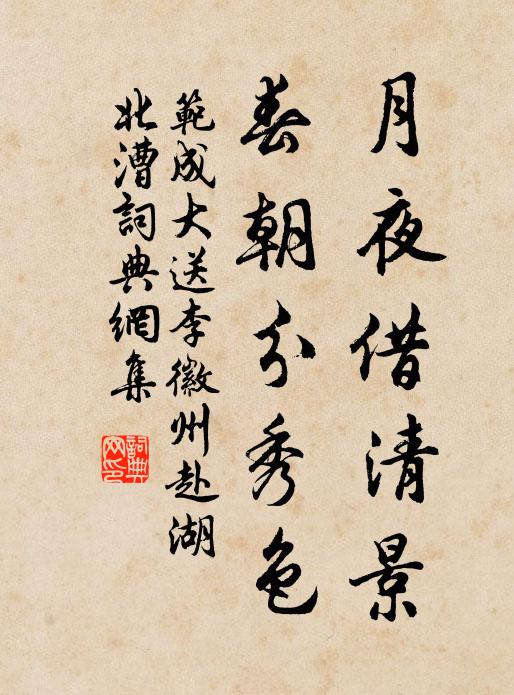 月夜借清景
春朝分秀色
範成大送李徽州赴湖
北漕詞典網集
詞典网印